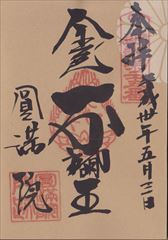 奉拝 平成卅年五月十二日
金色不動明王
圓満院